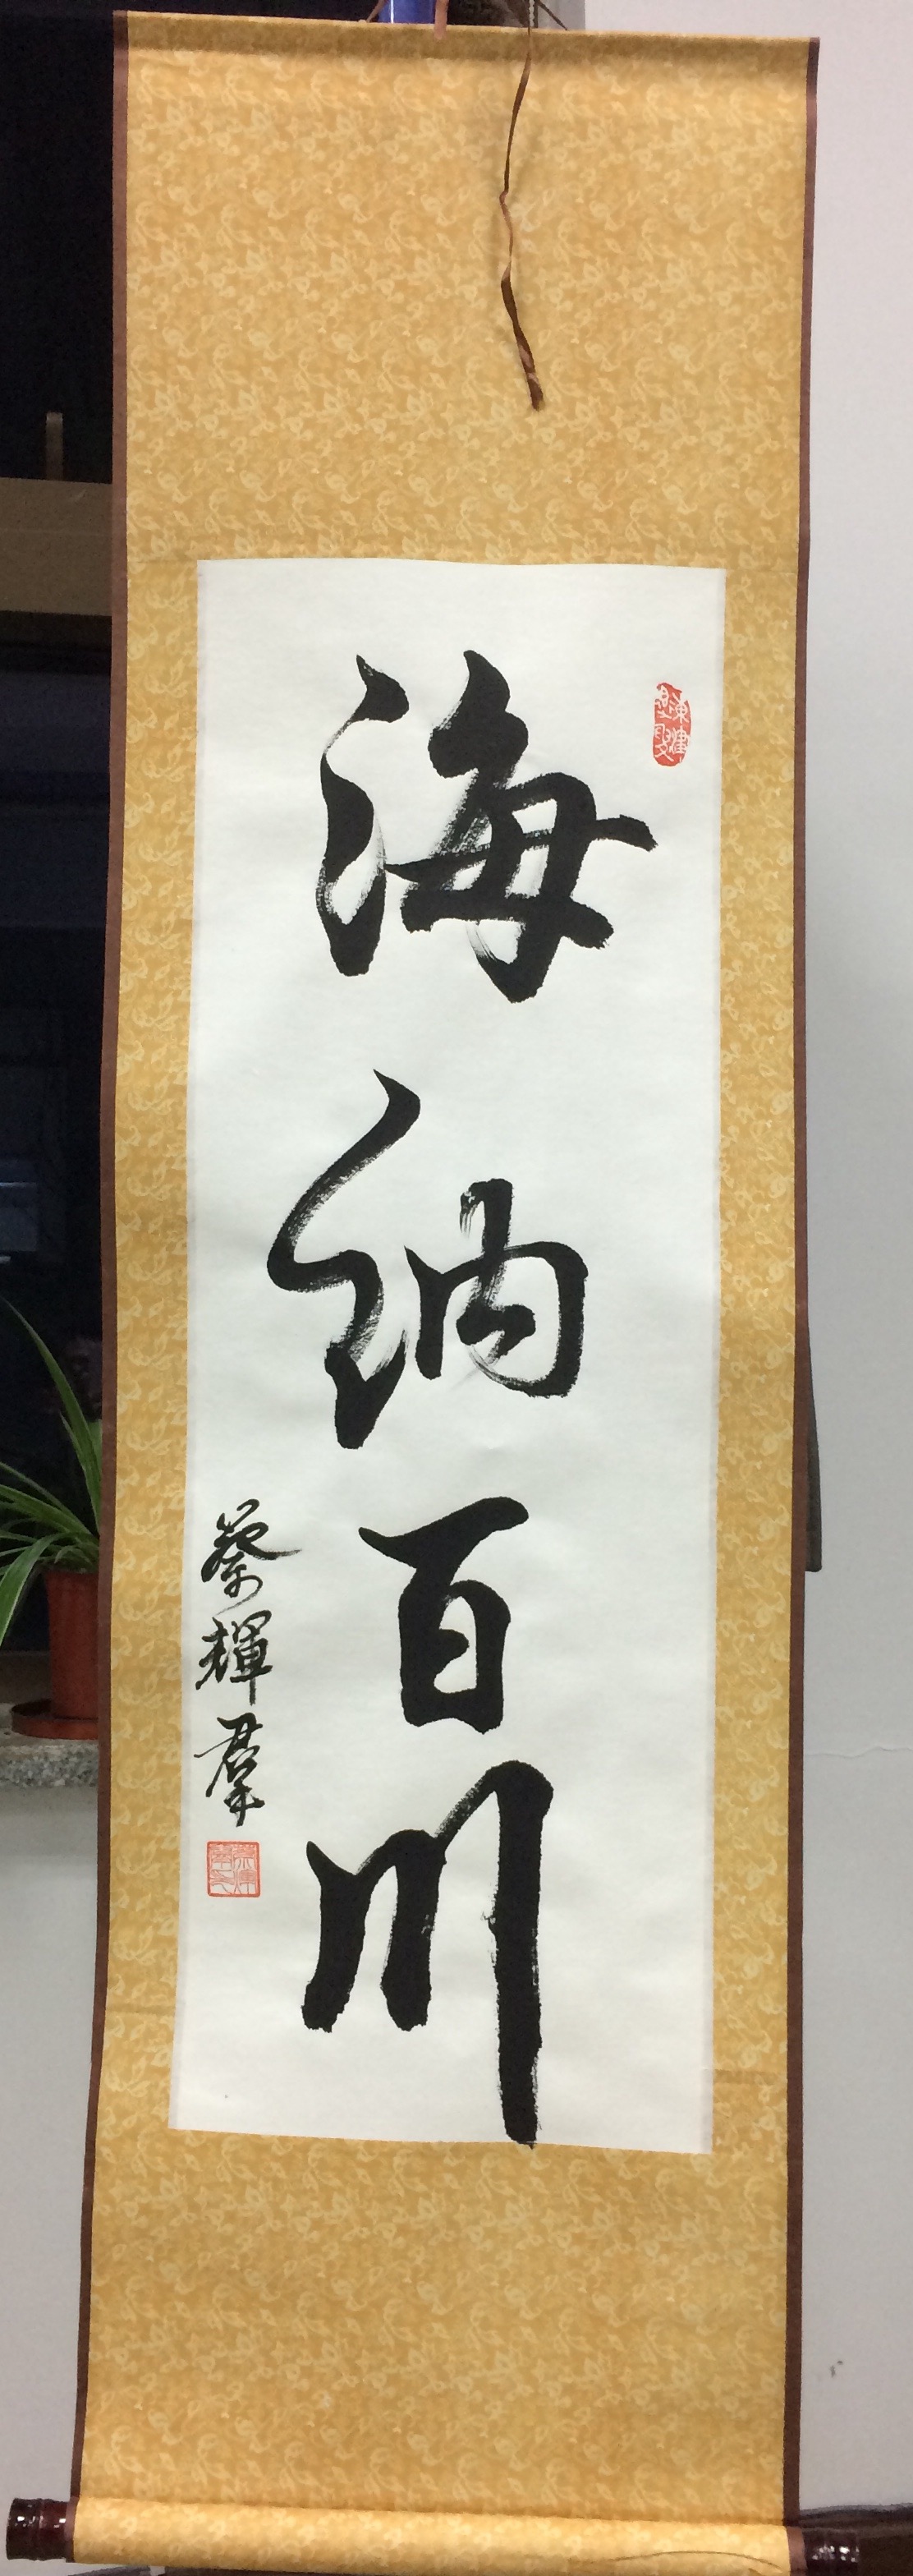 海纳百川
蔡輝羣